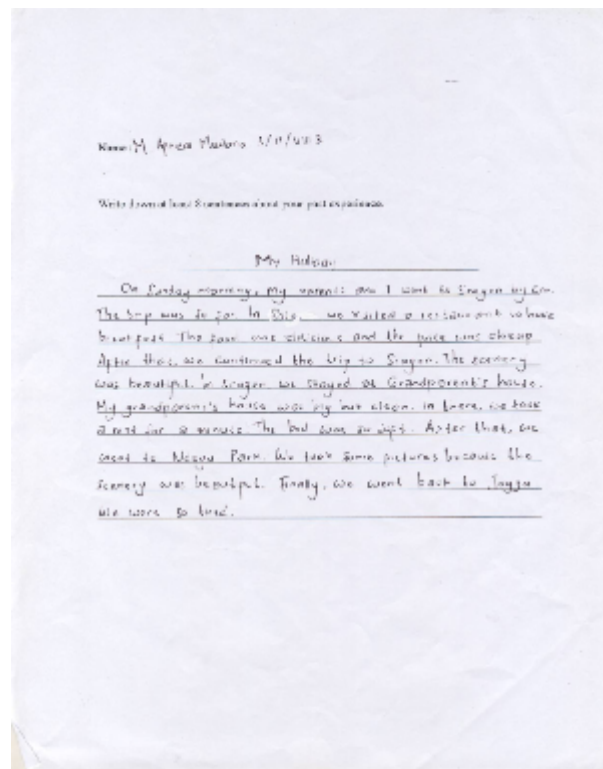 Name: M
Write down at least 8 sentences about your past experience.
My Holiday
On Sunday morning, my parents and I went to Sragen by car.
The trip was so far. In we visited a restaurant to have
breakfast. The food was delicious and the price was cheap
After that, we continued the trip to Sragen. The scenery
was beautiful. In Sragen we stayed at Grandparent's house.
My grandparent's house was big but clean. In there, we took
a rest for a minute. The bed was so soft. After that, we
went to Park. We took some pictures because the
scenery was beautiful. Finally, we went back to Jogja
We were so tired.